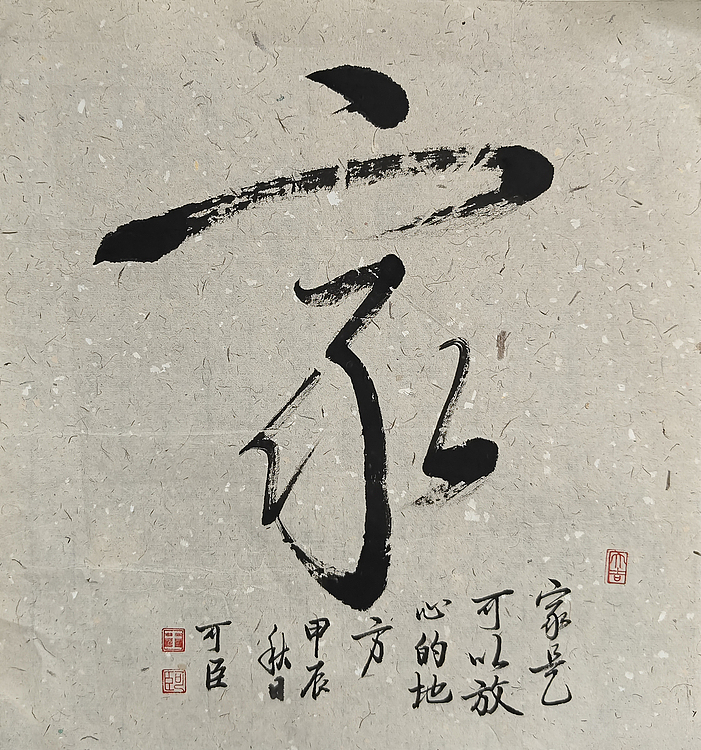 家
家是
可以放
心的地
方
甲辰
秋日
可臣
大吉